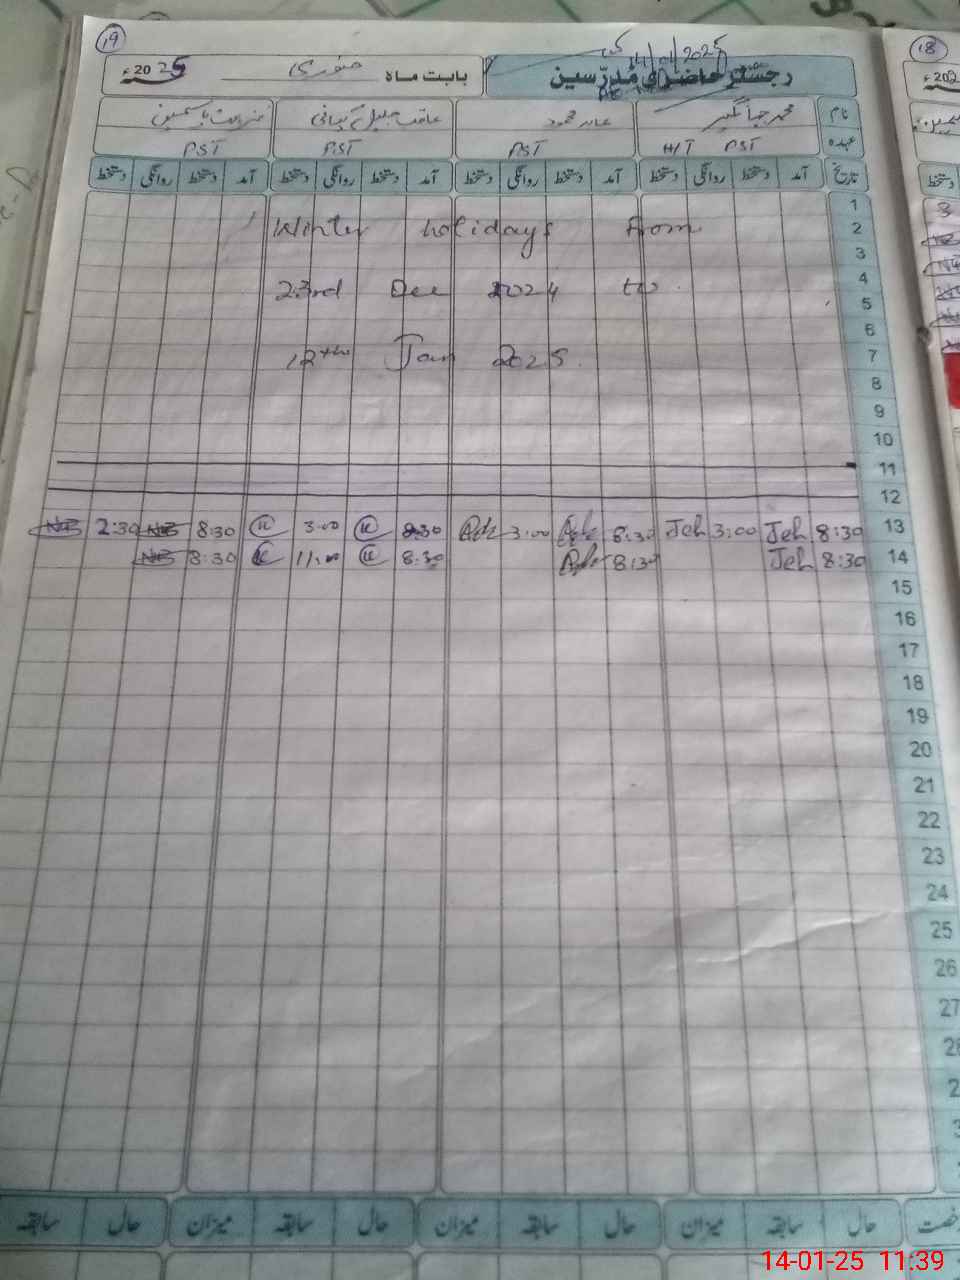 19
14/01/2025
رجسٹر حاضری مدرّسین
بابت ماہ جنوری 2025ء
نام محمد جہانگیر عابد محمود
عہدہ PST H/T PST PST PST
تاریخ آمد دستخط روانگی دستخط آمد دستخط روانگی دستخط آمد دستخط روانگی دستخط آمد دستخط روانگی دستخط
1
2 Winter holidays from
3
4 23rd Dec 2024 to
5
6
7 12th Jan 2025.
8
9
10
11
12
13 8:30 Jeh 3:00 Jeh 8:30 3:00 8:30 3:00 8:30 NB 2:30 NB
14 8:30 Jeh 8:30 8:30 11:00 8:30 NB
15
16
17
18
19
20
21
22
23
24
25
26
27
حال سابقہ میزان حال سابقہ میزان حال سابقہ میزان حال سابقہ
18
202
14-01-25 11:39